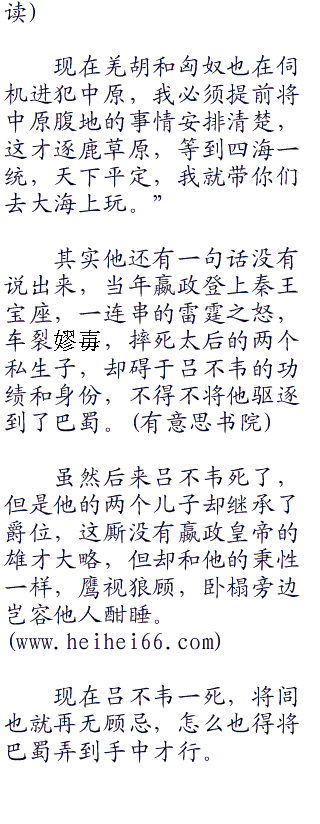 读)
现在羌胡和匈奴也在伺
机进犯中原，我必须提前将
中原腹地的事情安排清楚，
这才逐鹿草原，等到四海一
统，天下平定，我就带你们
去大海上玩。”
其实他还有一句话没有
说出来，当年嬴政登上秦王
宝座，一连串的雷霆之怒，
车裂嫪毐，摔死太后的两个
私生子，却碍于吕不韦的功
绩和身份，不得不将他驱逐
到了巴蜀。(有意思书院)
虽然后来吕不韦死了，
但是他的两个儿子却继承了
爵位，这厮没有嬴政皇帝的
雄才大略，但却和他的秉性
一样，鹰视狼顾，卧榻旁边
岂容他人酣睡。
(www.heihei66.com)
现在吕不韦一死，将闾
也就再无顾忌，怎么也得将
巴蜀弄到手中才行。